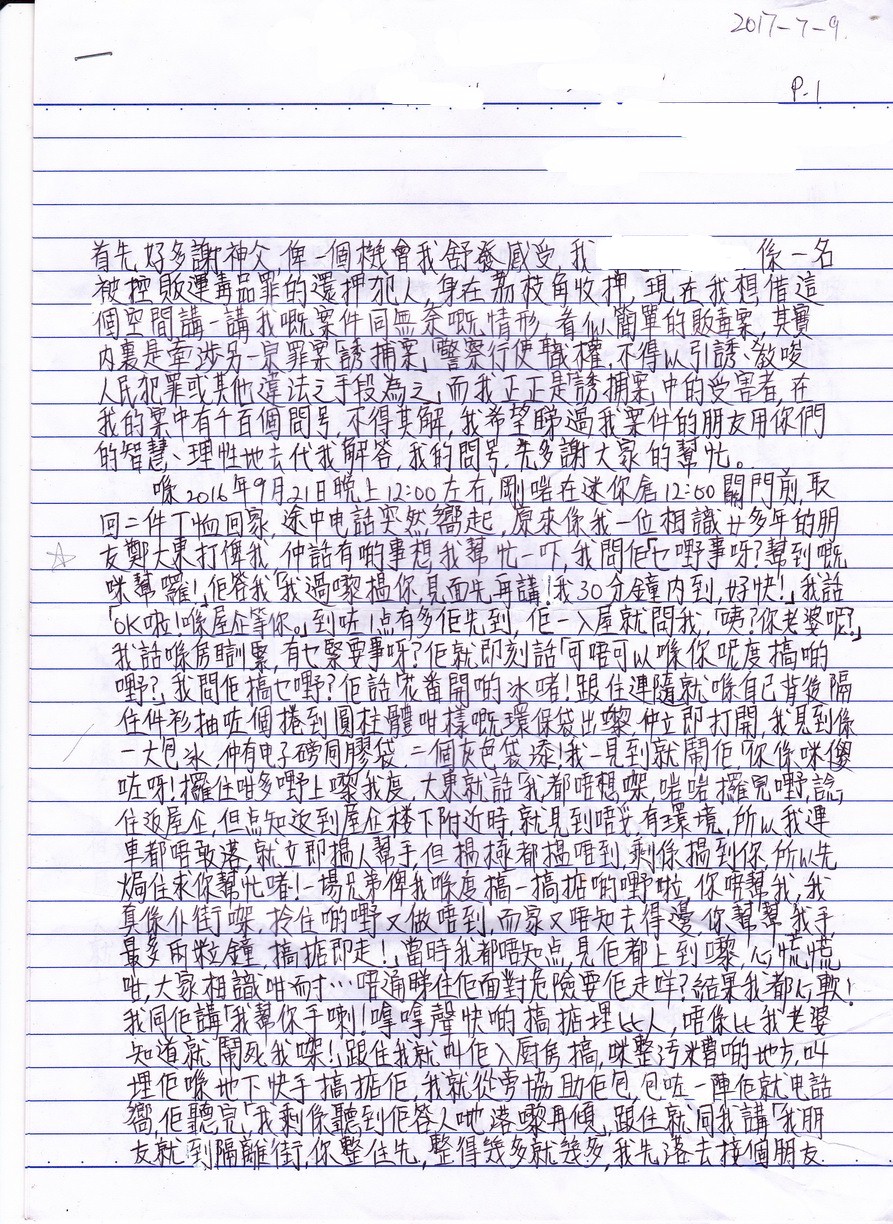 2017-7-9.
P-1
首先,好多謝神父,俾一個機會我舒發感受,我 係一名
被控販運毒品罪的還押犯人,身在荔枝角收押,現在我想借這
個空間講一講我嘅案件同無奈嘅情形,看似簡單的販毒案,其實
內裏是牽涉另一宗罪案「誘捕案」警察行使職權,不得以引誘、教唆
人民犯罪或其他違法之手段為之,而我正正是「誘捕案」中的受害者,在
我的案中有千百個問号,不得其解,我希望睇過我案件的朋友用你們
的智慧、理性地去代我解答,我的問号,先多謝大家的幫忙。
喺2016年9月21日晚上12:00左右,剛啱在迷你倉12:00關門前,取
回二件T恤回家,途中电話突然嚮起,原來係我一位相識廿多年的朋
友鄭大東打俾我,仲話有啲事想我幫忙一吓,我問佢「乜嘢事呀?幫到嘅
咪幫囉!」佢答我「我過嚟搵你,見面先再講!我30分鐘内到,好快!」我話
「OK啦!喺屋企等你。」到咗1点有多佢先到,佢一入屋就問我,「咦?你老婆呢?」
我話喺房瞓緊,有乜緊要事呀?佢就即刻話「可唔可以喺你呢度搞啲
嘢?」我問佢搞乜嘢?佢話「花番開啲冰啫!跟住連隨就喺自己背後隔
住件衫抽咗個捲到圓柱體咁樣嘅環保袋出嚟,仲立即打開,我見到係
一大包冰,仲有电子磅同膠袋,二個灰色袋添!我一見到就鬧佢,「你係咪傻
咗呀!攞住咁多嘢上嚟我度,大東就話「我都唔想㗎,啱啱攞完嘢,諗
住返屋企,但点知返到屋企楼下附近時,就見到唔妥,有環境,所以我連
車都唔敢落,就立即搵人幫手,但搵極都搵唔到,剩係搵到你,所以先
焗住求你幫忙啫!一場兄弟俾我喺度搞一搞掂啲嘢啦,你唔幫我,我
真係仆街㗎,拎住啲嘢又做唔到,而家又唔知去得邊,你幫幫我手,
最多兩粒鐘,搞掂即走!」當時我都唔知点,見佢都上到嚟,心慌慌
咁,大家相識咁耐…唔通睇住佢面對危險要佢走咩?結果我都心軟!
我同佢講「我幫你手喇!嗱嗱聲快啲搞掂埋比人,唔係比我老婆
知道就鬧死我㗎!跟住我就叫佢入厨房搞,咪整污糟啲地方,叫
埋佢喺地下快手搞掂佢,我就從旁協助佢包,包咗一陣佢就电話
嚮,佢聽完,「我剩係聽到佢答人哋落嚟再傾,跟住就同我講「我朋
友就到隔離街,你整住先,整得幾多就幾多,我先落去接個朋友